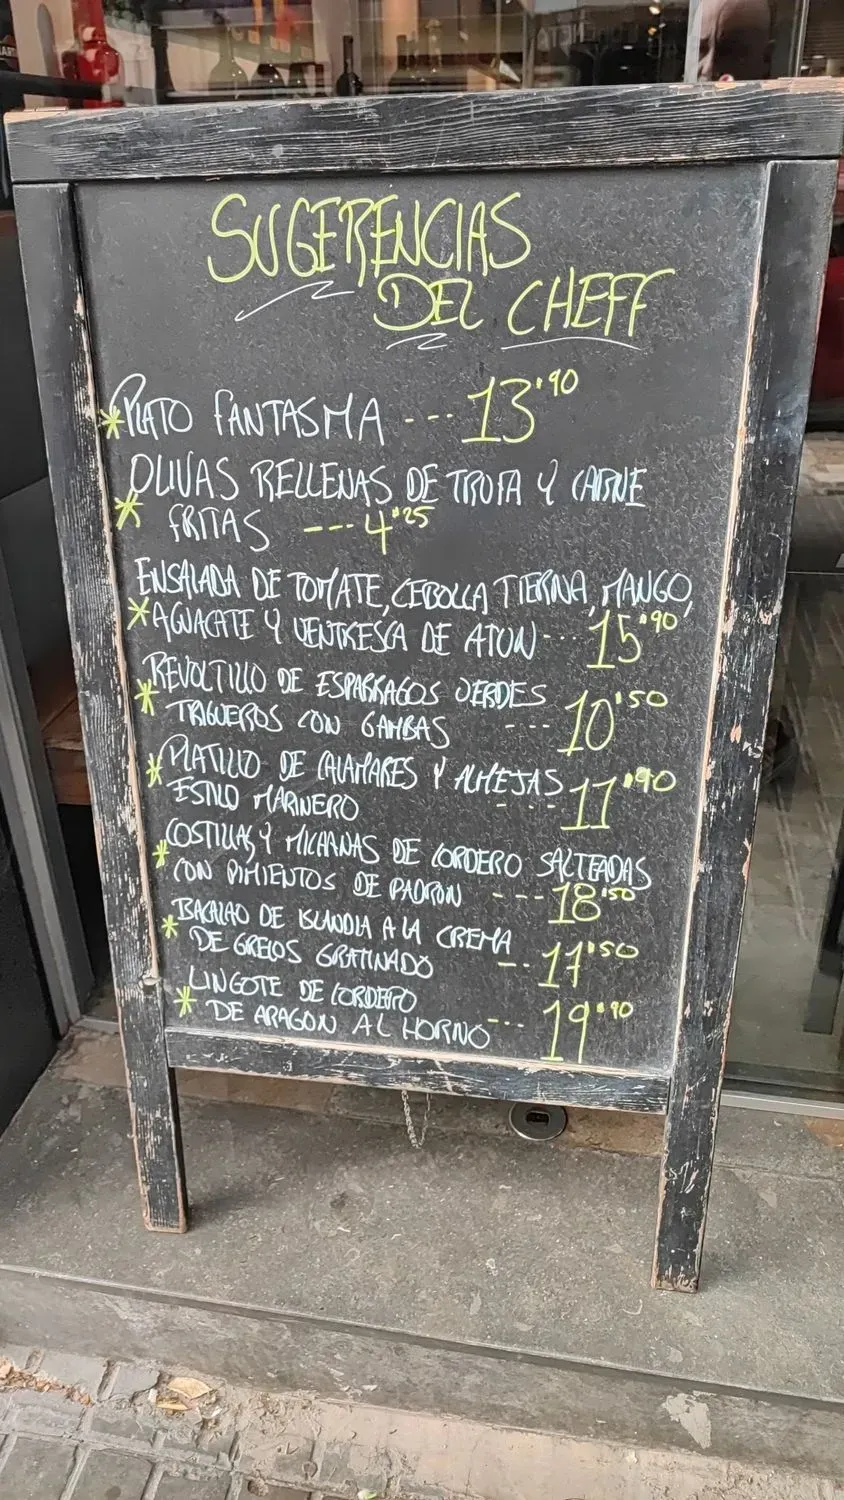 SUGERENCIAS
DEL CHEFF
*PLATO FANTASMA --- 13'90
OLIVAS RELLENAS DE TRUFA Y CARNE
* FRITAS --- 4'25
ENSALADA DE TOMATE, CEBOLLA TIERNA, MANGO,
*AGUACATE Y VENTRESCA DE ATUN --- 15'90
REVOLTILLO DE ESPARRAGOS VERDES
* TRIGUEROS CON GAMBAS --- 10'50
*PLATILLO DE CALAMARES Y ALMEJAS
ESTILO MARINERO --- 11'90
COSTILLAS Y MICHANAS DE CORDERO SALTEADAS
* CON PIMIENTOS DE PADRON --- 18'50
BACALAO DE ISLANDIA A LA CREMA
* DE GRELOS GRATINADO --- 17'50
LINGOTE DE CORDERO
* DE ARAGON AL HORNO --- 19'90